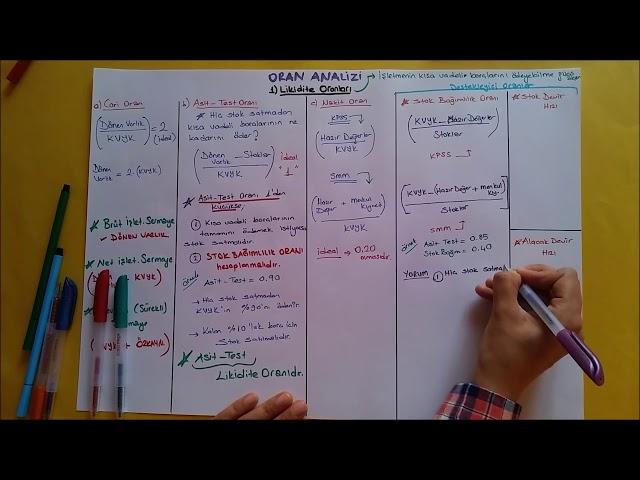 ORAN ANALİZİ
→ İşletmenin kısa vadeli borçlarını ödeyebilme gücü
1) Likidite Oranları
Destekleyici Oranlar
a) Cari Oran
(Dönen Varlık / KVYK) = 2 (ideal)
Dönen Varlık = 2.(KVYK)
* Brüt İşlet. Sermaye
→ DÖNEN VARLIK
* Net İşlet. Sermaye
KVYK)
(Sürekli)
+ ÖZKAYN.
b) Asit-Test Oranı
* Hiç stok satmadan
kısa vadeli
borçlarının ne
kadarını öder?
(Dönen Varlık - Stoklar / KVYK) ideal "1"
* Asit-Test Oranı 1'den
Küçükse;
① Kısa vadeli borçlarının
tamamını ödemek istiyorsa
stok satmalıdır.
② STOK BAĞIMLILIK ORANI
hesaplanmalıdır.
örnek
Asit-Test = 0.90
→ Hiç stok satmadan
KVYK'ın %90'nı ödenir.
→ Kalan %10'luk borç için
Stok satılmalıdır.
* Asit-Test
Likidite Oranıdır.
c) Nakit Oran
KPSS
(Hazır Değerler / KVYK)
SMM
(Hazır Değer + menkul kıymet / KVYK)
ideal → 0,20
olmalıdır.
* Stok Bağımlılık Oranı
(KVYK - Hazır Değerler / Stoklar)
KPSS
[KVYK - (Hazır Değer + menkul Kıy.) / Stoklar]
SMM
örnek
Asit Test = 0.85
Stok Bağım = 0.40
YORUM ① Hiç stok satma
* Stok Devir
Hızı
* Alacak Devir
Hızı